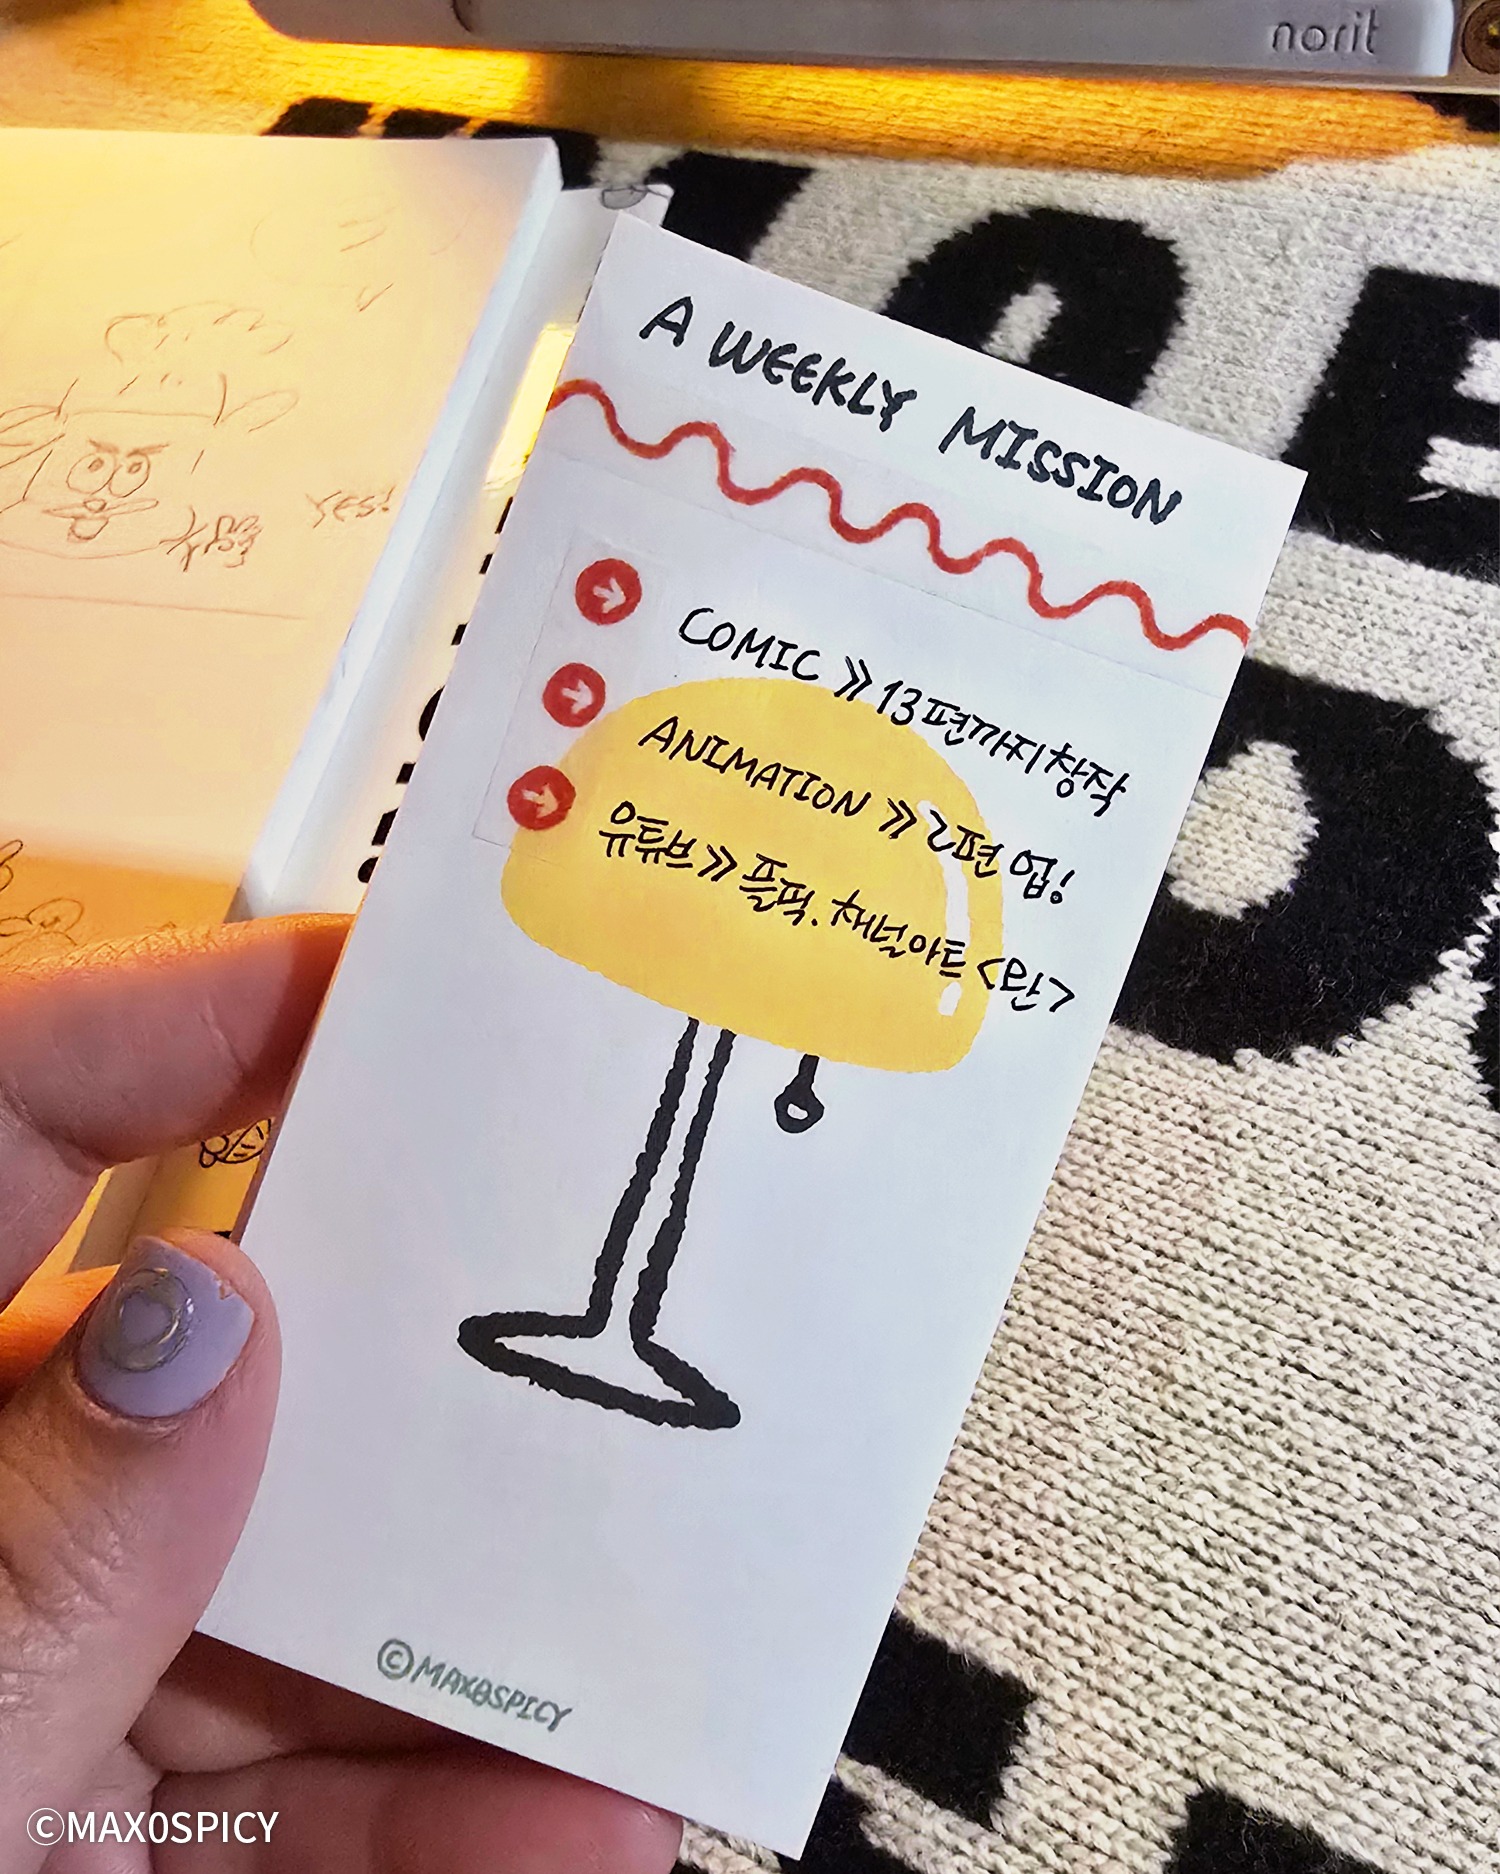 norit
YES!
A WEEKLY MISSION
COMIC >> 13편까지 창작
ANIMATION >> 2편 업!
유튜브 >> 플픽. 채널아트 <만>
©MAX0SPICY
©MAX0SPICY